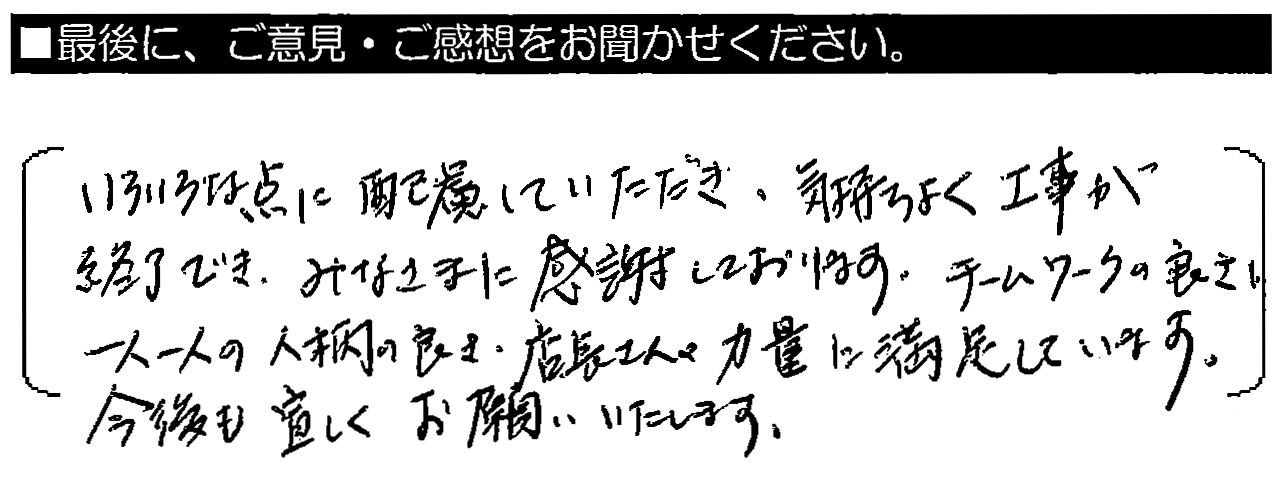 ■最後に、ご意見・ご感想をお聞かせください。
いろいろな点に配慮していただき、気持ちよく工事が
終了でき、みなさまに感謝しております。チームワークの良さ、
一人一人の人柄の良さ、店長さんの力量に満足しています。
今後も宜しくお願いいたします。